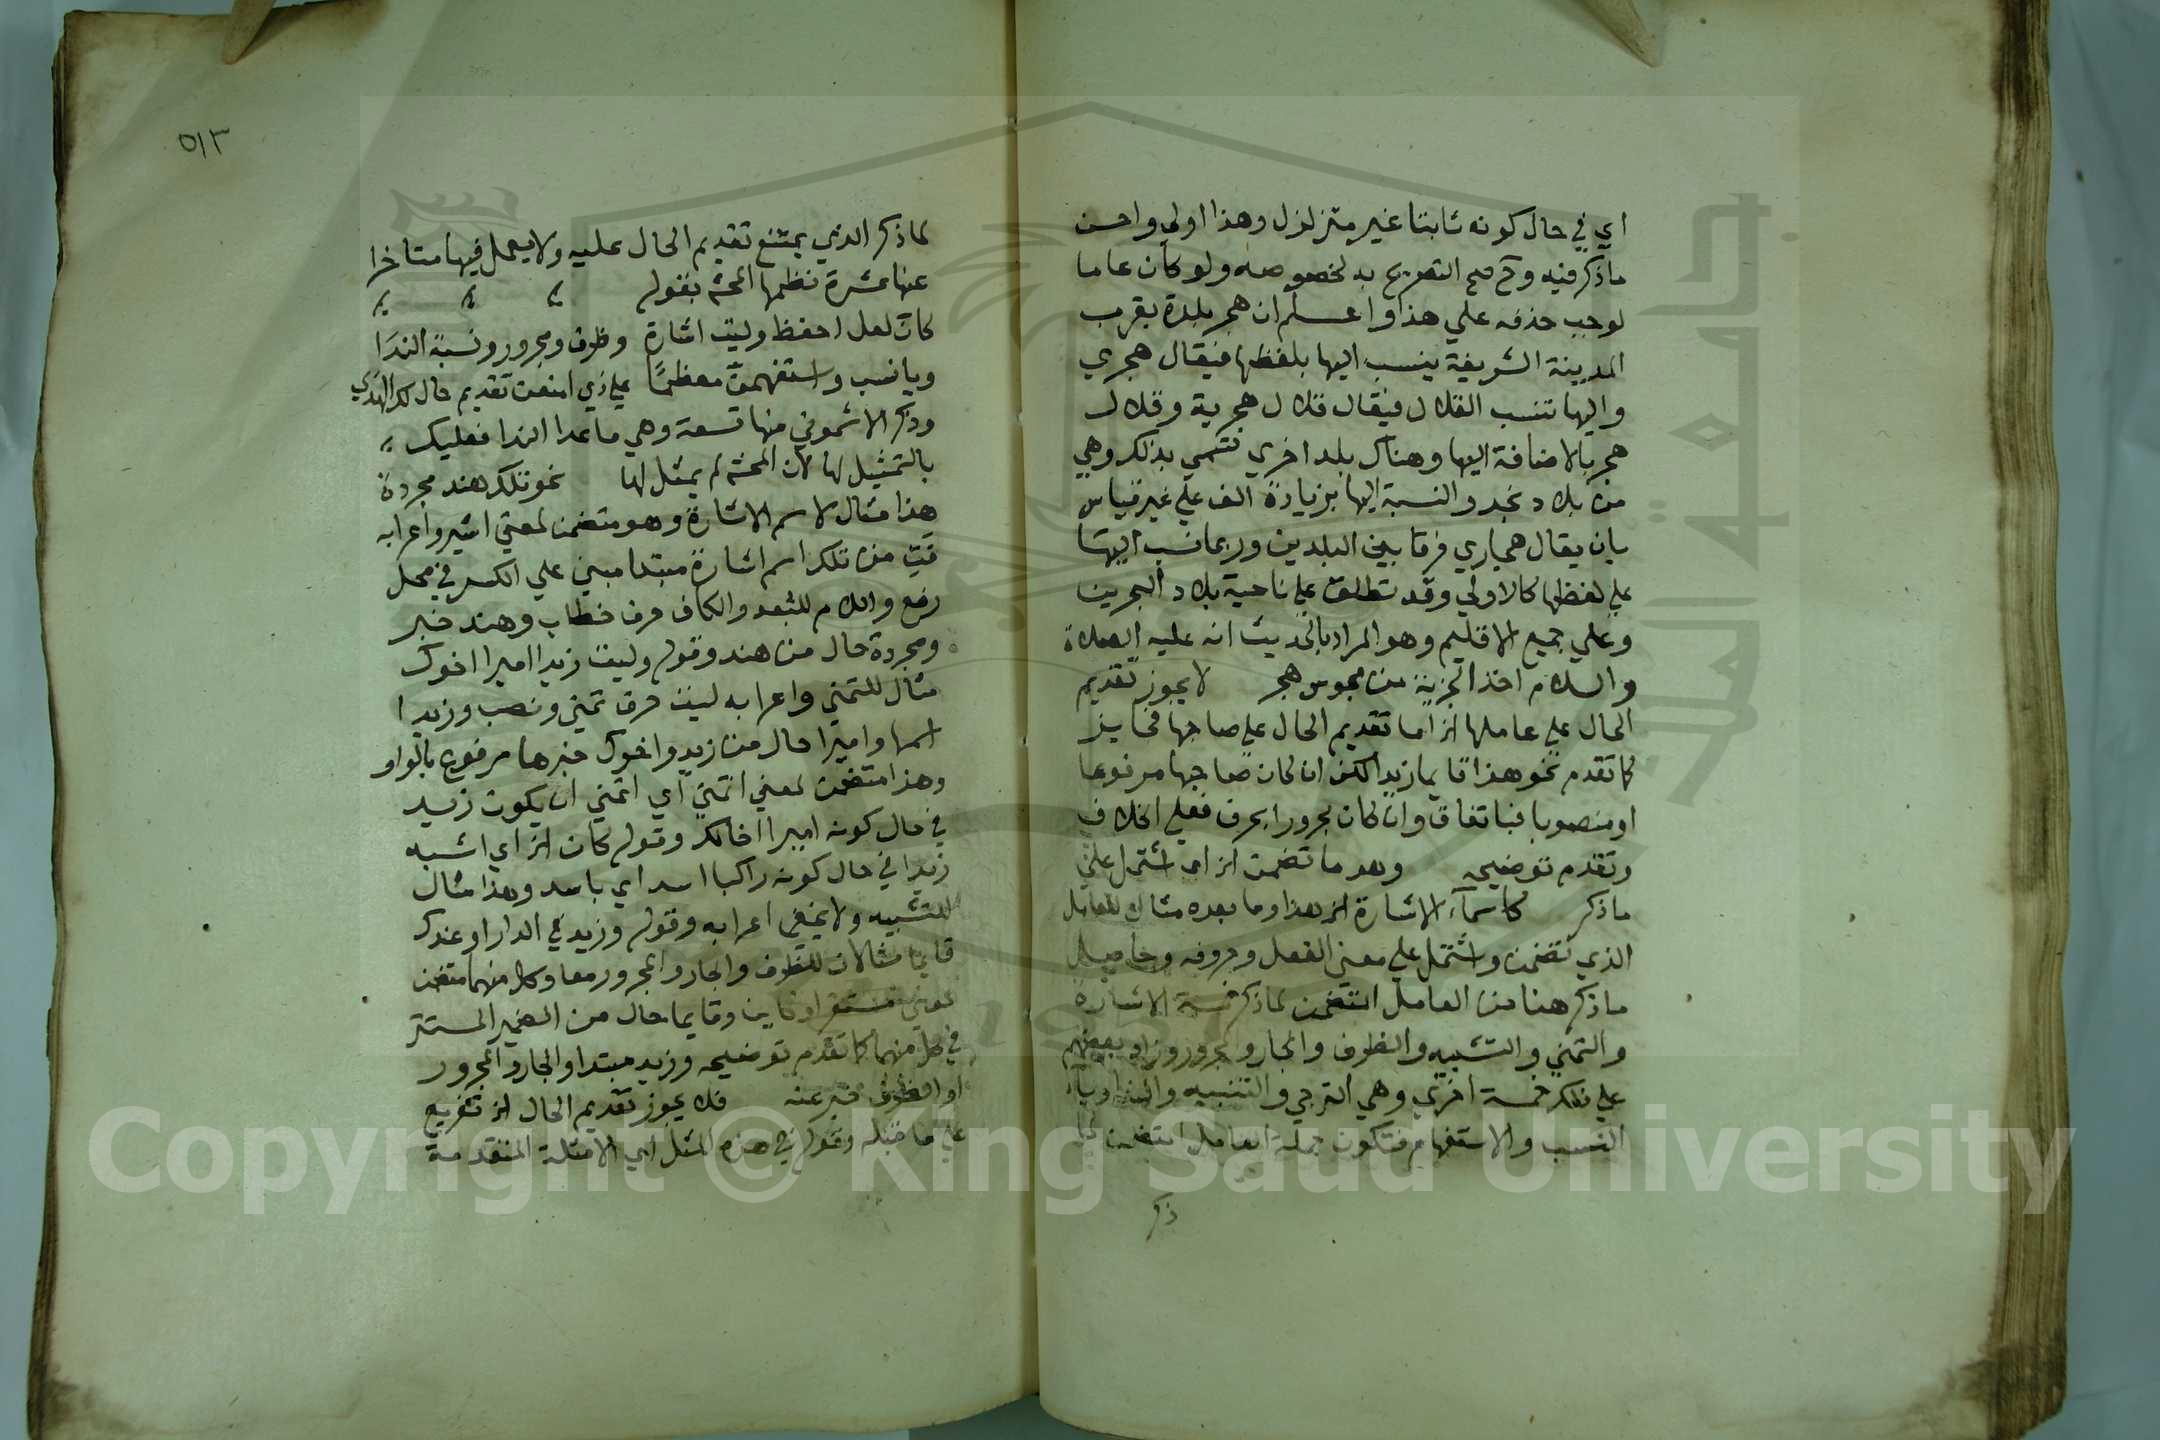 اي في حال كونه ثابتا غير متزلزل وهذا اولي واحسن
ما ذكر فيه وح صح التصريح به لخصوصه ولو كان عاما
لوجب حذفه علي هذا واعلم ان هجر بلدة بقرب
المدينة الشريفة ينسب اليها بلفظها فيقال هجري
واليها تنسب القلال فيقال قلال هجرية وقلال
هجر بالاضافة اليها وهناك بلد اخري تسمي بذلك وهي
من بلاد نجد والنسبة اليها بزيادة الف علي غير قياس
بان يقال هجاري فرقا بين البلدين وربما نسب اليها
علي لفظها كالاولي وقد تطلق علي ناحية بلاد البحرين
وعلي جميع الاقليم وهو المراد بالحديث انه عليه الصلاة
والسلام اخذ الجزية من مجوس هجر لا يجوز تقديم
الحال علي عاملها الخ اما تقديم الحال علي صاحبها فجايز
كما تقدم نحو هذا قايما زيد لكن ان كان صاحبها مرفوعا
او منصوبا فباتفاق وان كان مجرورا بحرف فعلي الخلاف
وتقدم توضيحه وهو ما تضمن الخ اي اشتمل علي
ما ذكر كاسمآء الاشارة الخ هذا وما بعده مثال للعامل
الذي تضمن واشتمل علي معني الفعل وحروفه وحاصل
ما ذكر هنا من العامل المتضمن لما ذكر خمسة الاشارة
والتمني والتشبيه والظرف والجار والمجرور وزاد بعضهم
علي ذلك خمسة اخري وهي الترجي والتنبيه والندا وياء
النسب والاستفهام فتكون جملة العامل المتضمن لما
ذكر
٥١٣
لما ذكر الذي يمتنع تقديم الحال عليه ولا يعمل فيها متاخرا
عنها عشرة نظمها المحشي بقوله
كان لعل احفظ وليت اشارة وظرف ومجرور ونسبة الندا
ويا نسب واستفهمن معظمًا علي ذي امنعن تقديم حال لك الهدي
وذكر الاشموني منها تسعة وهي ما عدا الندا فعليك
بالتمثيل لها لان المحشي لم يمثل لها نحو تلك هند مجردة
هذا مثال لاسم الاشارة وهو متضمن لمعني اشير واعرابه
تي من تلك اسم اشارة مبتدا مبني علي الكسر في محل
رفع واللام للبعد والكاف حرف خطاب وهند خبر
ومجردة حال من هند وقوله وليت زيدا اميرا اخوك
مثال للتمني واعرابه ليت حرف تمني ونصب وزيدا
اسمها واميرا حال من زيد واخوك خبرها مرفوع بالواو
وهذا متضمن لمعني اتمني اي اتمني ان يكون زيد
في حال كونه اميرا اخا لك وقوله كان الخ اي اشبه
زيدا في حال كونه راكبا اسد اي باسد وهذا مثال
للتشبيه ولا يخفي اعرابه وقوله وزيد في الدار او عندك
قايما مثالان للظرف والجار والمجرور معا وكل منهما متضمن
لمعني مستقر او كاين وقايما حال من الضمير المستتر
في كل منهما كما تقدم توضيحه وزيد مبتدا والجار والمجرور
او الظرف خبر عنه فلا يجوز تقديم الحال الخ تفريع
علي ما قبله وقوله في هذه المثل اي الامثلة المتقدمة
Copyright © King Saud University